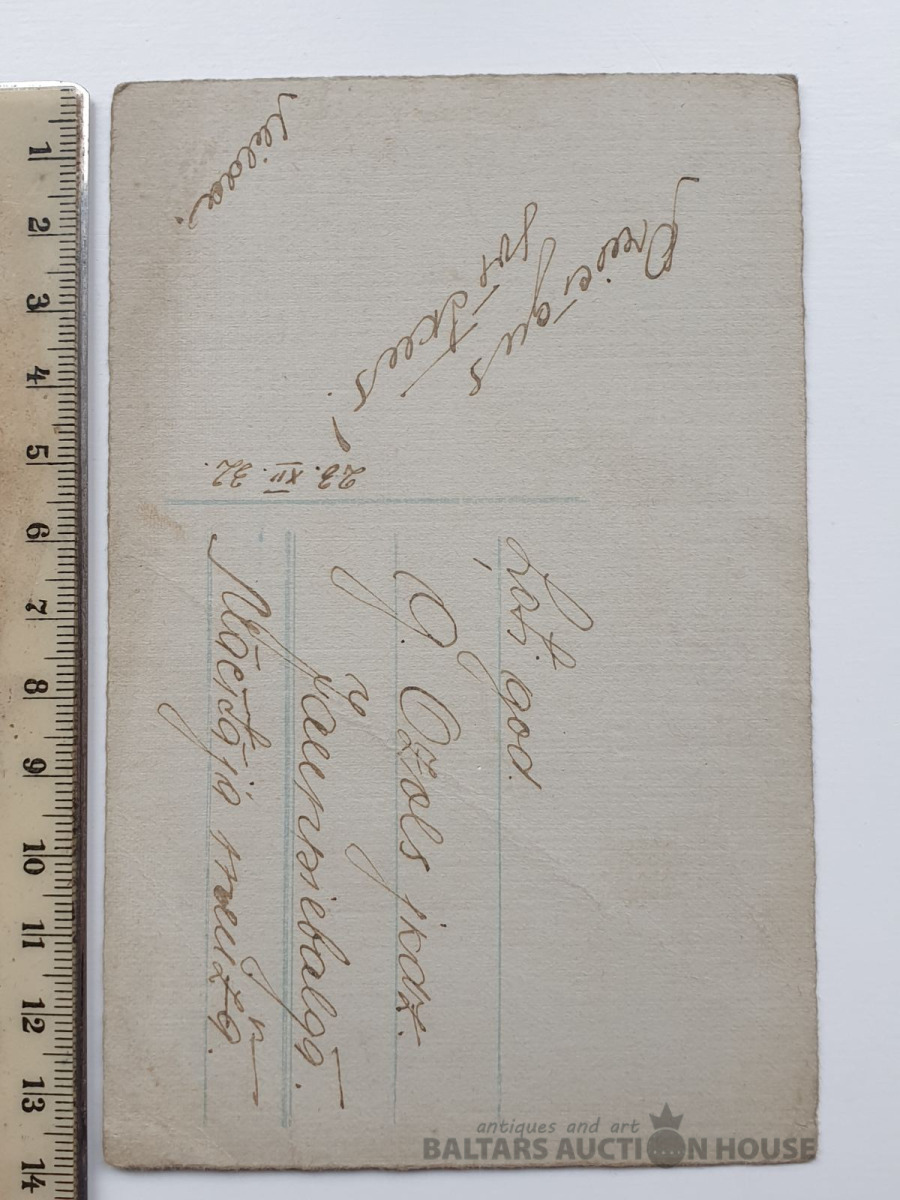 Priecīgus
svētkus!
Milda.
23. XII. 32.
Ļoti god.
G. Ozols jkdz.
Jaunpiebalgā.
Mācītāja muižā.
1
2
3
4
5
6
7
8
9
10
11
12
13
14
antiques and art
BALTARS AUCTION HOUSE